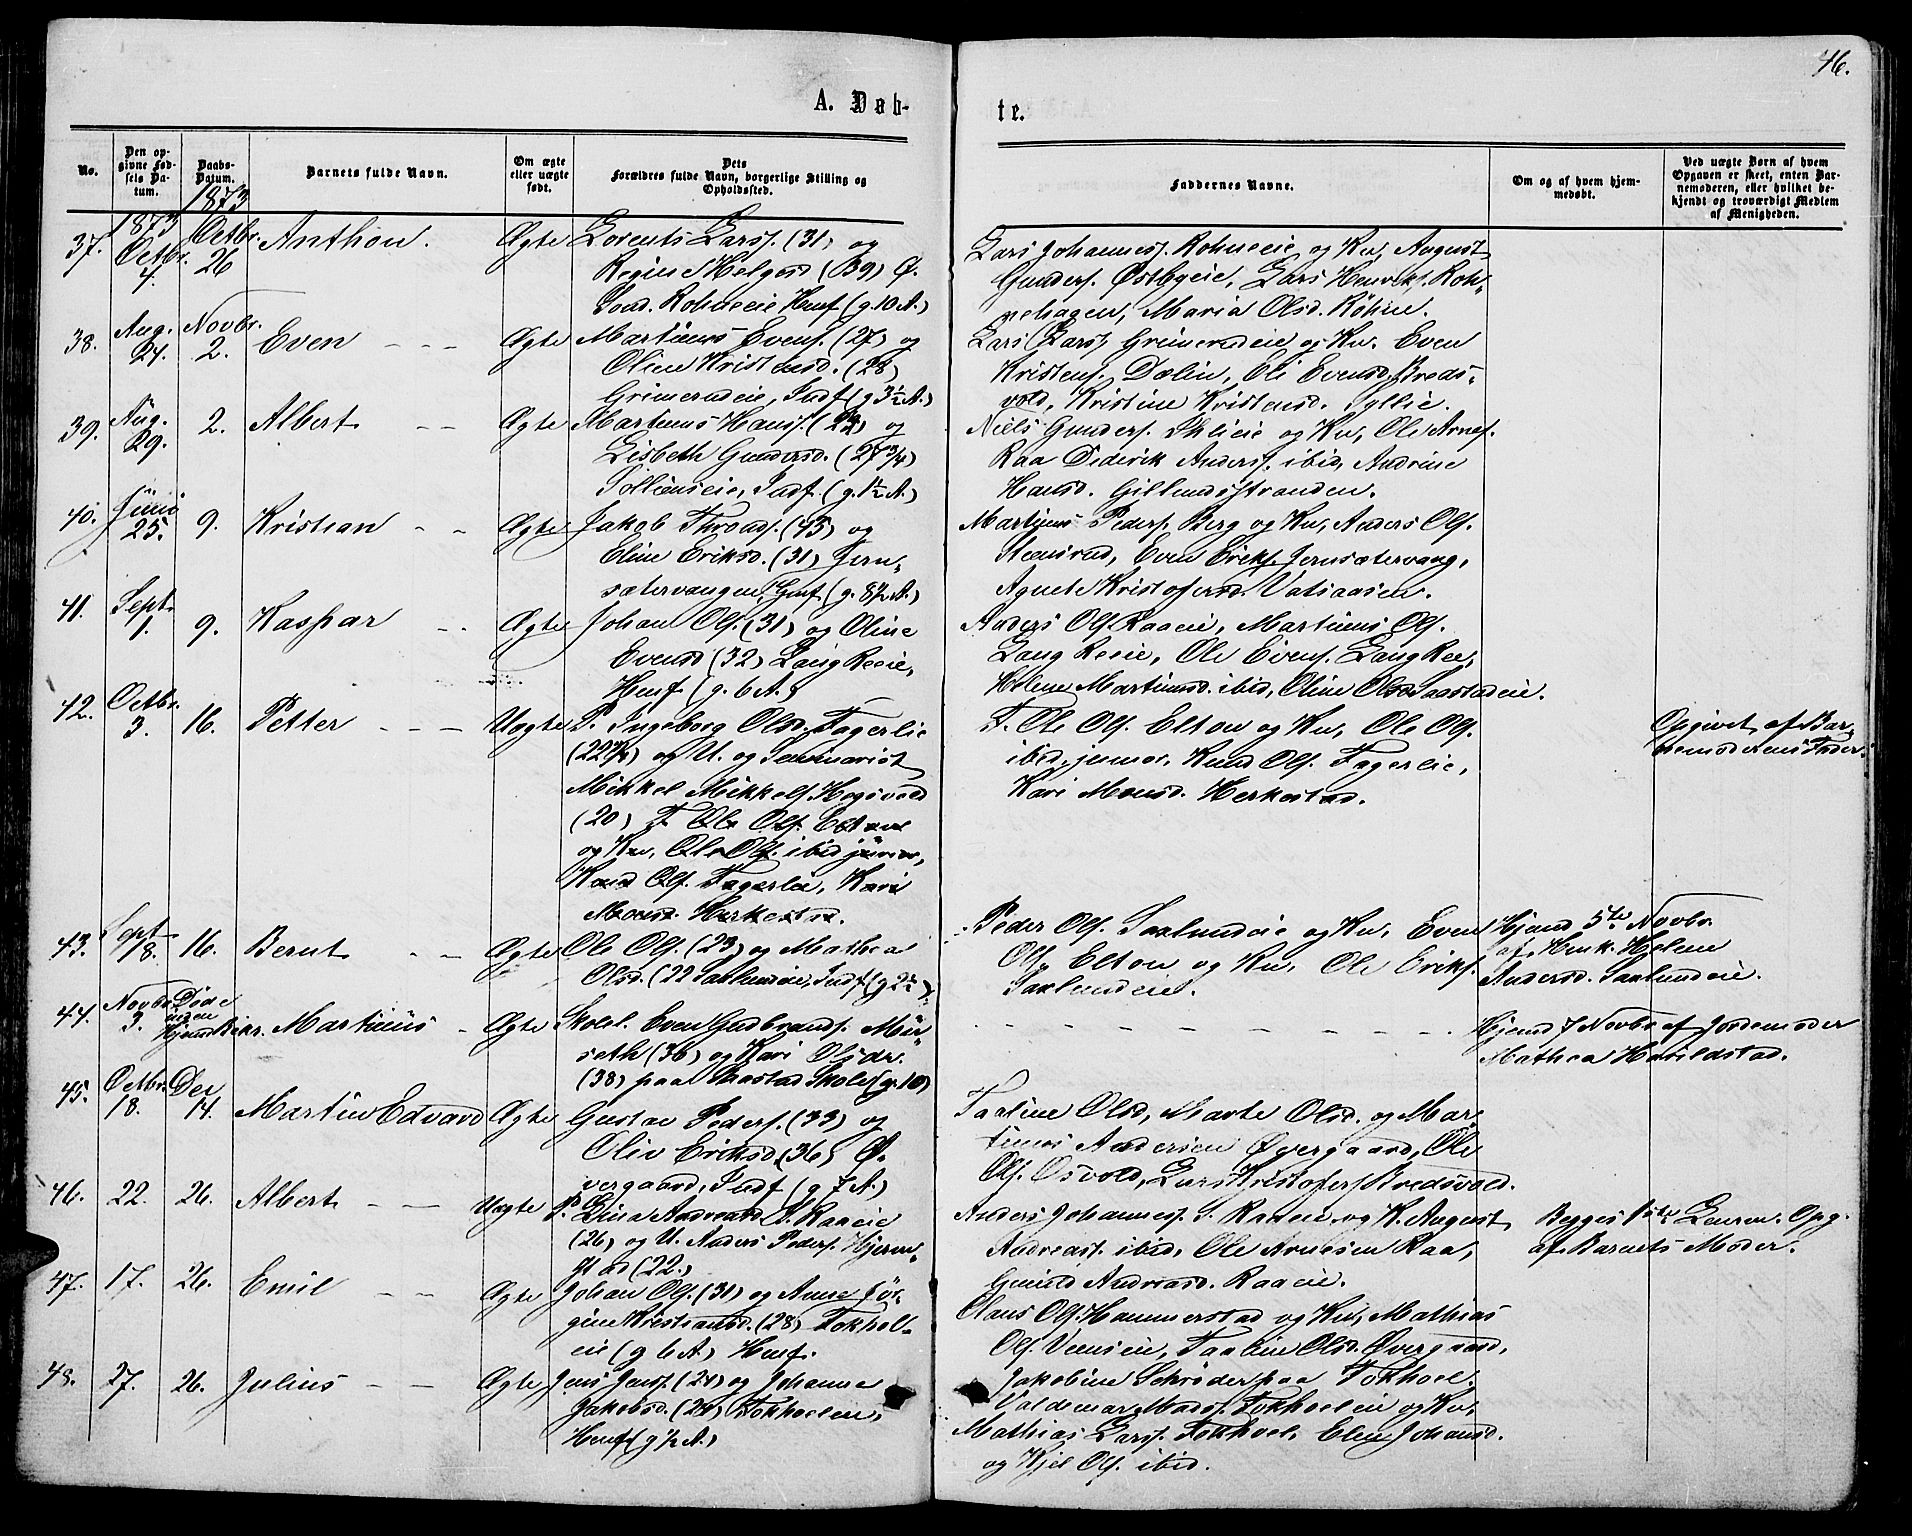 46.
A. Døb-
te.
No.
Den op-
givne Fød-
sels Da-
tum.
Daabs-
Datum.
1873
Barnets fulde Navn.
Om ægte
eller uægte
født.
Dets
Forældres fulde Navn, borgerlige Stilling og
Opholdssted.
Faddernes Navne.
Om og af hvem hjem-
medøbt.
Ved uægte Børn af hvem
Opgaven er skeet, enten Bar-
nemoderen, eller hvilket be-
kjendt og troværdigt Medlem
af Menigheden.
37. 1873 Octbr. 4. Octbr. 26 Anthon. Ægte Lorents Larss. (31) og
Regine Helgesd (39) Ø.
Sond. Rohneeie Husf (g. 10 A.)
Lars Johanness. Rohneeie og Kv, August
Gunders. Østbyeie, Lars Henriks. Roh-
nehagen, Maria Olsd. Röhne.
38. Aug. 24. Novbr. 2. Even - - - Ægte Martinus Evens. (27) og
Oline Kristensd. (28)
Grimerudeie, Indf (g 3½ A.)
Lars Larss, Grimerudeie og Kv. Even
Kristens. Dælin, Eli Evensd. Breds-
vold, Kristine Kristensd. Gyllie.
39. Aug. 29. 2. Albert - - Ægte Martinus Hanss. og
Lisbeth Gundersd. (27 3/4)
Indf. (g. 1½ A.)
Niels Gunders. og Kv, Ole Arnes.
Raa Diderik Anderss. ibid, Andrine
Hansd. Gillundstranden.
40. Juni 25. 9. Kristian - - Ægte Jakob Thronds. (45) og
Eline Eriksd. (31) Jern-
sætervangen, Husf (g. 8½ A.)
Martinus Peders. Berg og Kv, Anders Ols.
Stensrud, Even Eriks. Jernsætervang,
Agnete Kristofersd.
41. Sept. 1. 9. Kaspar - - Ægte Johan Ols. (31) og Oline
Evensd (32) Lang Reeie,
Husf (g. 6 A.)
Anders Ols. Raaeie, Martinus Ols.
Lang Reeie, Ole Evens. Lang Ree,
Helene Martinusd. ibid, Oline Olsd. Saastadeie.
42. Octbr. 3. 16. Petter - - - Uægte P. Ingeborg Olsd. Fagerlie
(22½) og U. og Seminarist
Mikkel Mikkels. Hogsvold
(20) F. Ole Ols. Elton
og Kv, Ole Ols. ibid junior,
Knud Ols. Fagerlie, Kari
Monsd. Herkestad.
F. Ole Ols. Elton og Kv, Ole Ols.
ibid junior, Knud Ols. Fagerlie,
Kari Monsd. Herkestad.
Opgivet af Bar-
nemoderens Fader.
43. Sept. 18. 16. Bernt - - Ægte Ole Ols. (23) og Mathea
Olsd. (22 Saxlundeie, Indf (g 2½)
Peder Ols. Saxlundeie og Kv, Even
Ols. Elton og Kv, Ole Eriks.
Saxlundeie.
Hjemd 5te Novbr.
af Henk. Helene
Andersd. Saxlundeie.
44. Novbr. 3. Døde inden Hjemd Bekr. Martinus - Ægte Skolel. Even Gudbrands. Mür-
seth (36) og Kari Olsdr.
(38) paa Saastad Skole (g. 10)
- - - - - - - - - - -
Hjemd 7 Novbr af Jordemoder
Mathea Harildstad.
45. Octbr. 18. Dec 14. Martin Edvard Ægte Gustav Peders. (33) og
Oliv Eriksd. (36) Ø-
vergaard, Indf (g 7 A.)
Taaline Olsd, Marte Olsd. og Mar-
tinus Andersen Øvergaard, Ole
Ols. Osvold, Lars Kristofers Bredsvold.
46. 22. 26. Albert - - Uægte P. Lina Andreasd. S. Raaeie
(26) og U. Anders Peders. Hjerm-
stad (22.)
Anders Johanness. S. Raaeie og K. August
Andreass. ibid, Ole Arnesen Raa,
Gunild Andreasd. Raaeie.
Begges 1ste Leierm. Opg.
af Barnets Moder.
47. 17. 26. Emil - - Ægte Johan Ols. (31) og Anne Jör-
gine Kristiansd. (28) Tokhol-
eie (g 6 A.) Husf.
Claus Ols. Hammerstad og Kv, Mathias
Ols. Veenseie, Taaline Olsd. Øvergaard,
Jakobine Schrøder paa Tokhoel.
48. 27. 26. Julius - - Ægte Jens Jenss. (21) og Johanne
Jakobsd. (24) Tokhoeleie,
Husf (g ½ A.)
Valdemar Madss. Tokhoeleie og Kv,
Mathias Larss. Tokhoel, Elen Johansd.
og Kjel Ols. ibid.